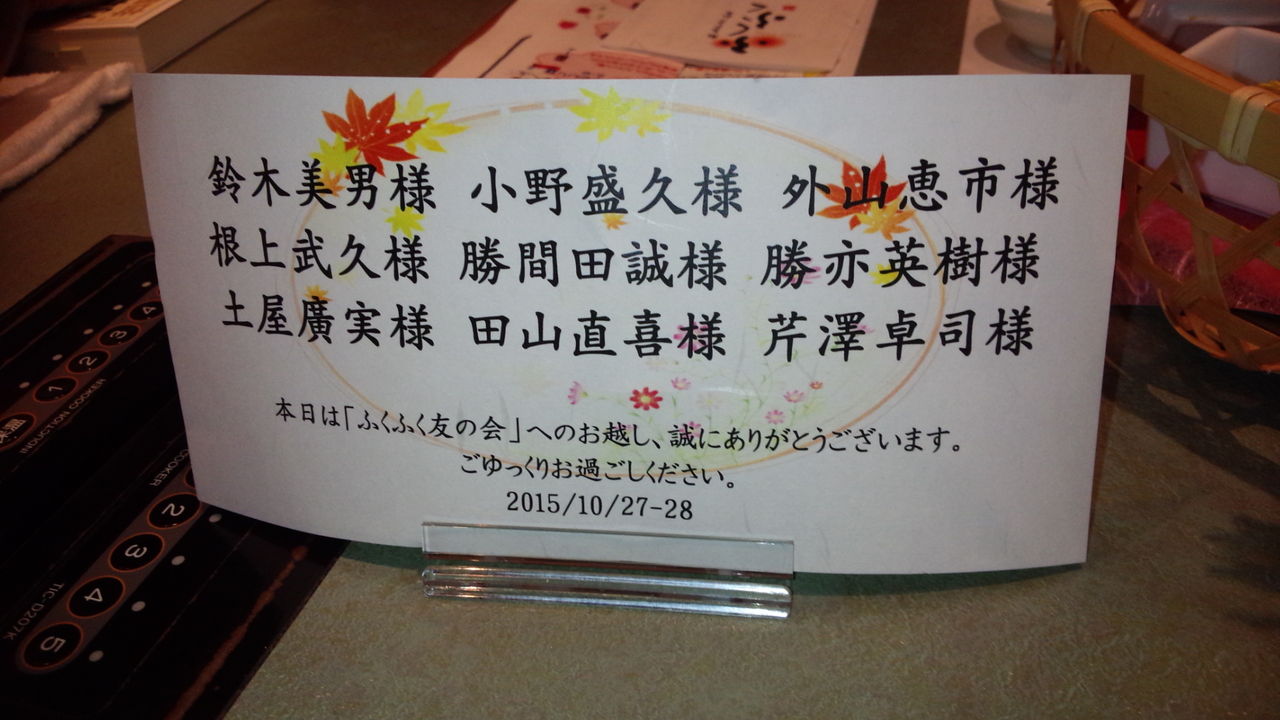 鈴木美男様 小野盛久様 外山恵市様
根上武久様 勝間田誠様 勝亦英樹様
土屋廣実様 田山直喜様 芹澤卓司様
本日は「ふくふく友の会」へのお越し、誠にありがとうございます。
ごゆっくりお過ごしください。
2015/10/27-28
4
3
2
1
INDUCTION COOKER
COOKER
2
3
4
5
TIC-D207K